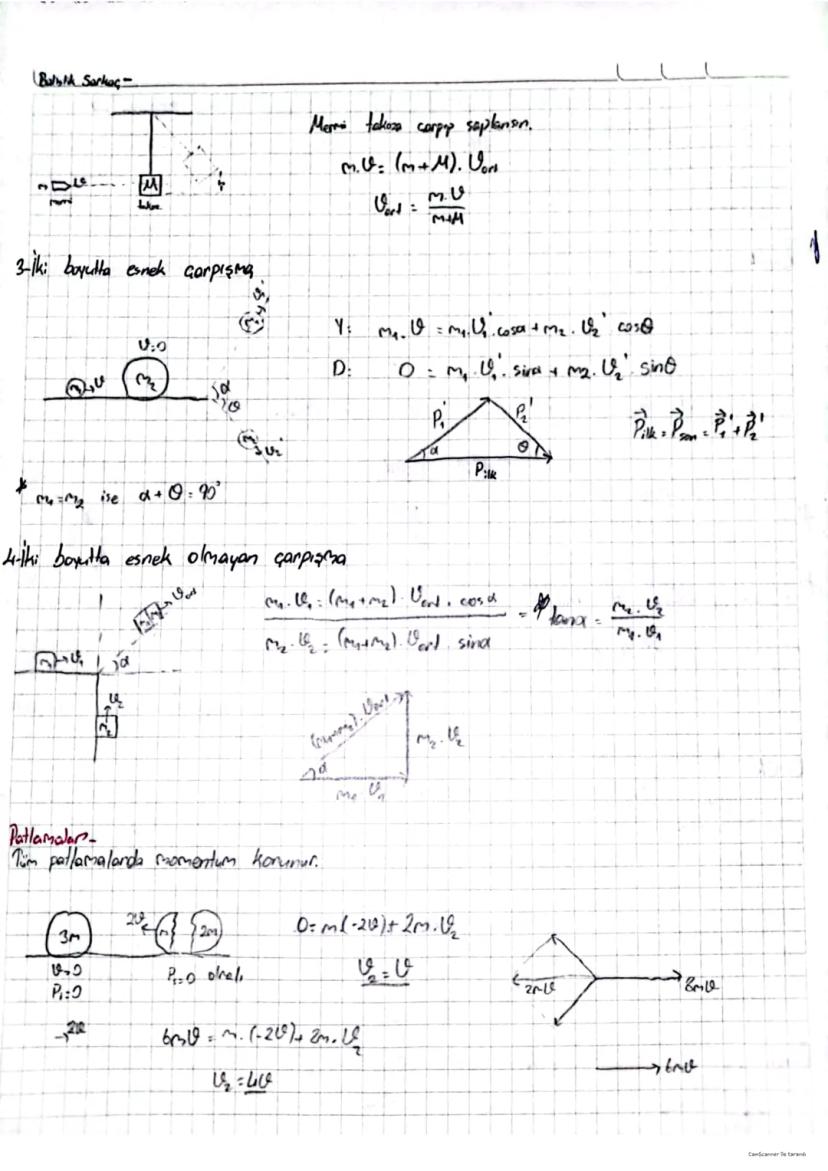 Balistik Sarkaç-
Mermi takoza çarpıp saplansın.
m.V = (m+M).Vort
Vort = m.V / m+M
m V
mermi
M
takoz
h
3-İki boyutta esnek çarpışma
V=0
m₁ V
m₂
α
θ
V₂'
Y: m₁.V = m₁.V₁'.cosα + m₂.V₂' cosθ
D: 0 = m₁.V₁'.sinα + m₂.V₂' sinθ
P₁' P₂'
α θ
Pilk
Pilk = Pson = P₁' + P₂'
* m₁=m₂ ise α+θ=90°
4-İki boyutta esnek olmayan çarpışma
Vort
m₁ V₁
α
V₂
m₂
m₁.V₁ = (m₁+m₂).Vort.cosα
m₂.V₂ = (m₁+m₂).Vort.sinα
= tanα = m₂.V₂ / m₁.V₁
(m₁+m₂).Vort
m₂.V₂
α
m₁ V₁
Patlamalar-
Tüm patlamalarda momentum korunur.
3m
V=0
P₁=0
2V m 2m
0 = m(-2V) + 2m.V₂
V₂ = V
2mV
8mV
6mV
→2V
6mV = m.(-2V) + 2m.V₂
V₂ = 4V
CamScanner ile tarandı